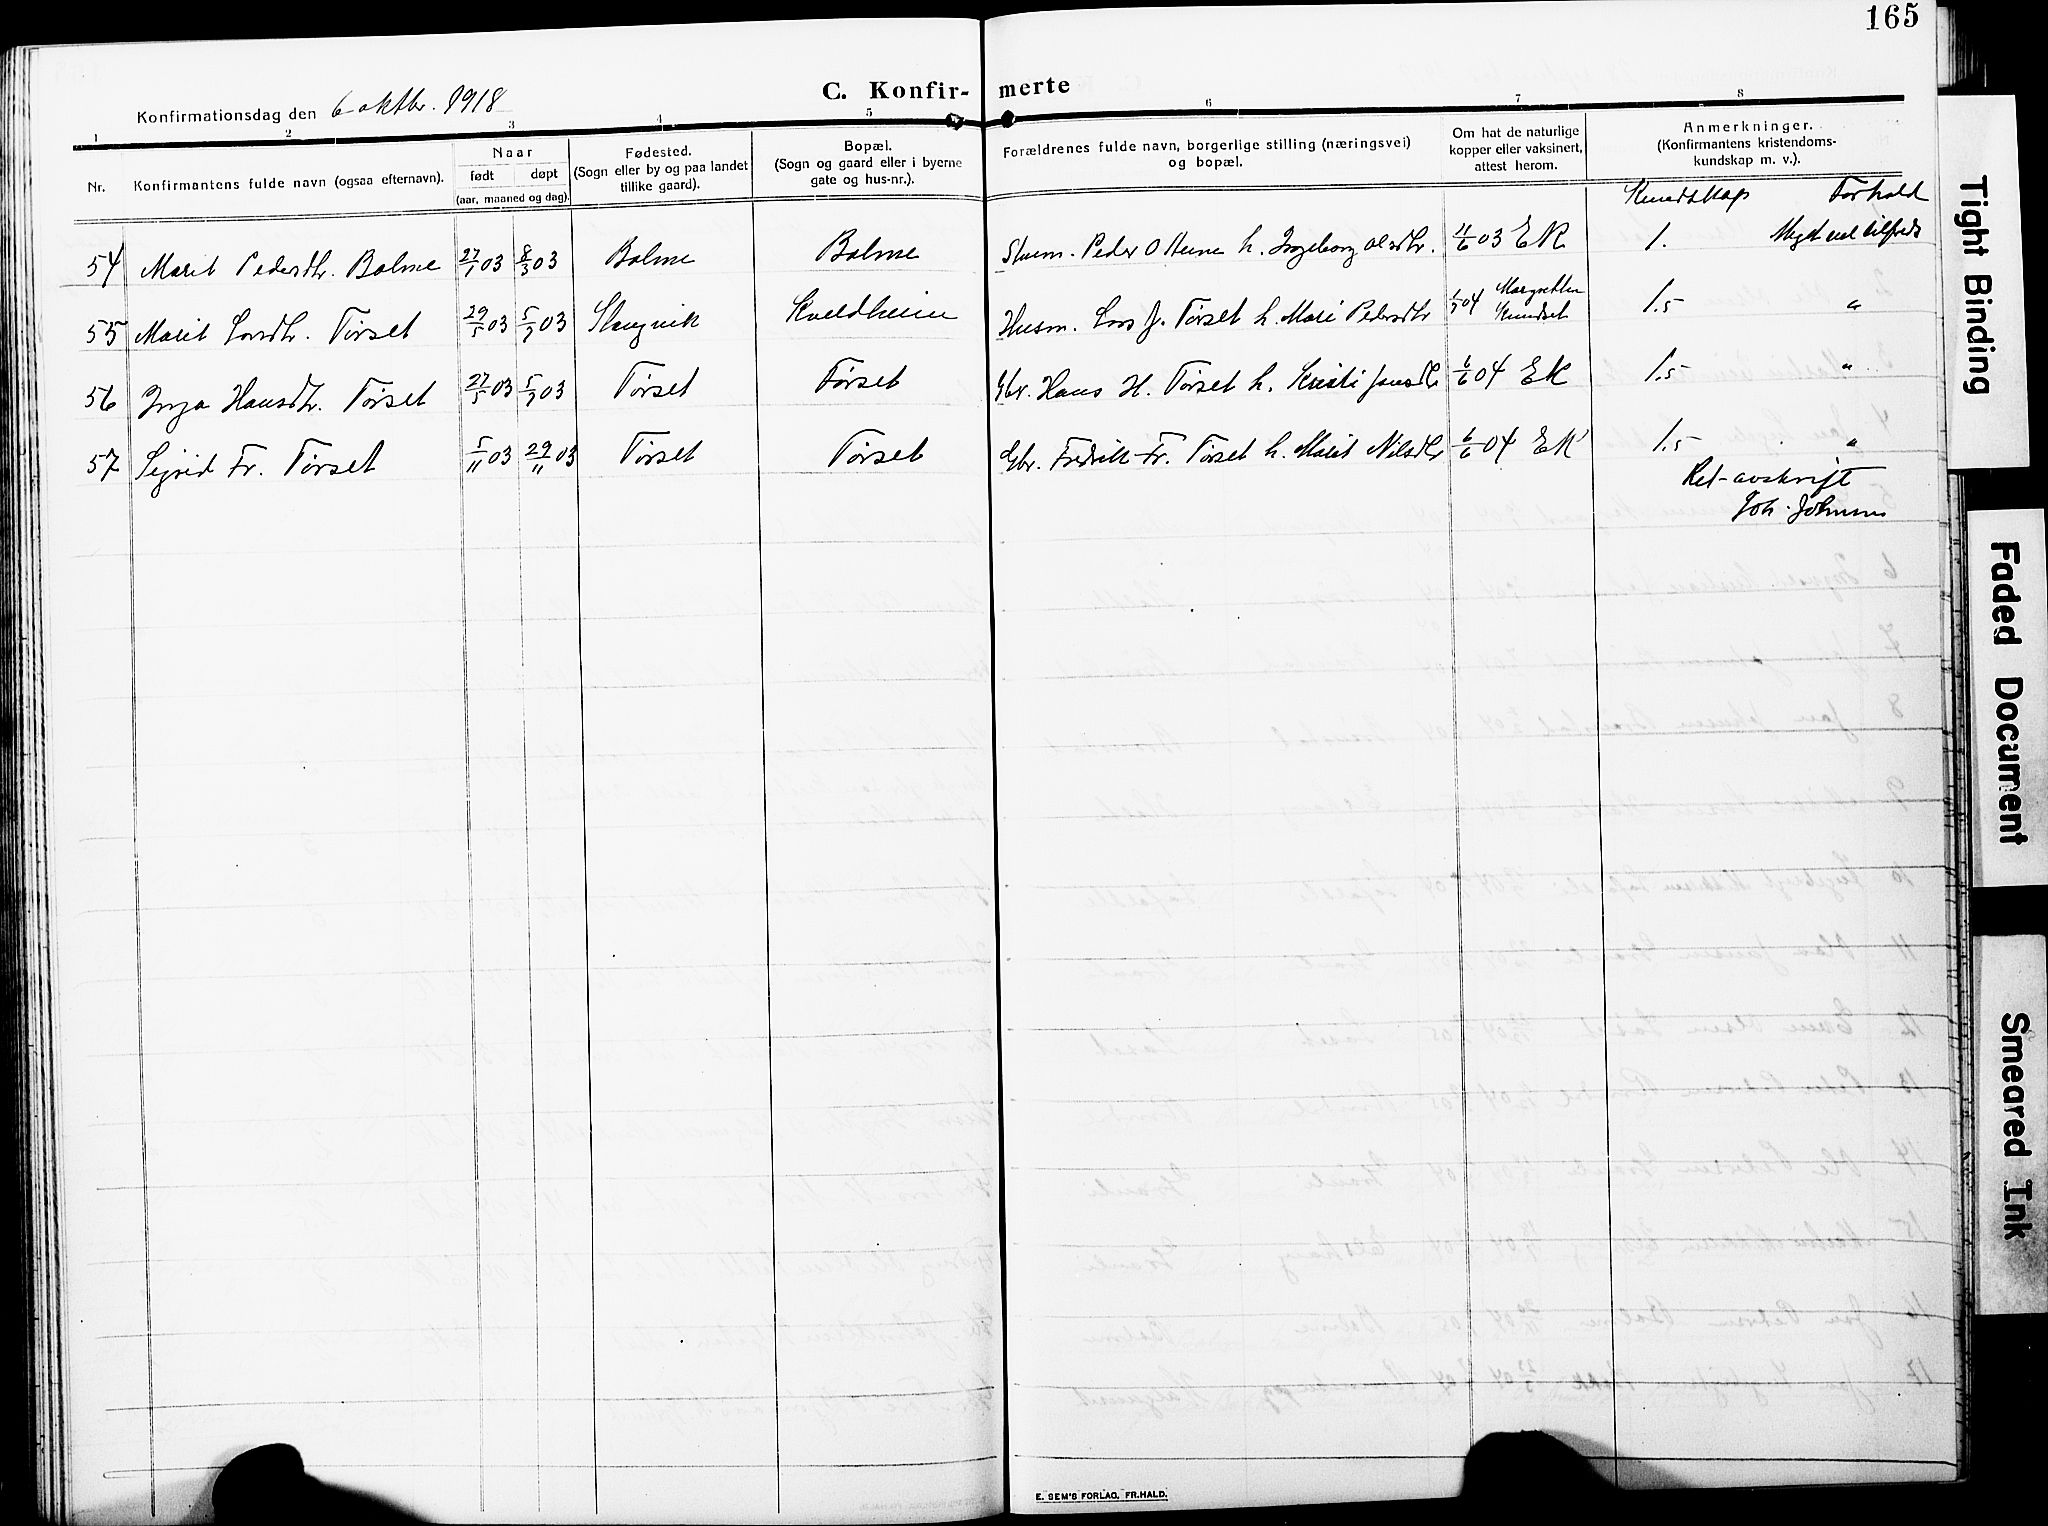 165
C. Konfir- merte
Konfirmationsdag den 6 oktbr. 1918
1 2 3 4 5 6 7 8
Nr.
Konfirmantens fulde navn (ogsaa efternavn).
Naar
født døpt
(aar, maaned og dag).
Fødested.
(Sogn eller by og paa landet
tillike gaard).
Bopæl.
(Sogn og gaard eller i byerne
gate og hus-nr.).
Forældrenes fulde navn, borgerlige stilling (næringsvei)
og bopæl.
Om hat de naturlige
kopper eller vaksinert,
attest herom.
Anmerkninger.
(Konfirmantens kristendoms-
kundskap m. v.).
Kundskap Forhold
54 Marit Pedersdtr. Bolme 27/1 03 8/3 03 Bolme Bolme Peder O h. Ingeborg Olsdtr. 11/6 03 EK 1. Meget vel tilfreds
55 Marit Larsdtr. Tørset 29/5 03 5/7 03 Stangvik Kveldheim Husm. Lars J. Tørset h. Mari Pedersdtr 04 1.5 "
56 Inga Hansdtr. Tørset 27/5 03 5/7 03 Tørset Tørset Gbr. Hans H. Tørset h. Kristi Jansdtr 6/6 04 EK 1.5 "
57 Sigrid Fr. Tørset 5/11 03 29/11 03 Tørset Tørset Gbr. Fredrik Fr. Tørset h. Marit Nilsdtr 6/6 04 EK 1.5 "
Ret avskrift
Joh. Johnsen
E. SEM'S FORLAG, FR.HALD.
Tight Binding
Faded Document
Smeared Ink